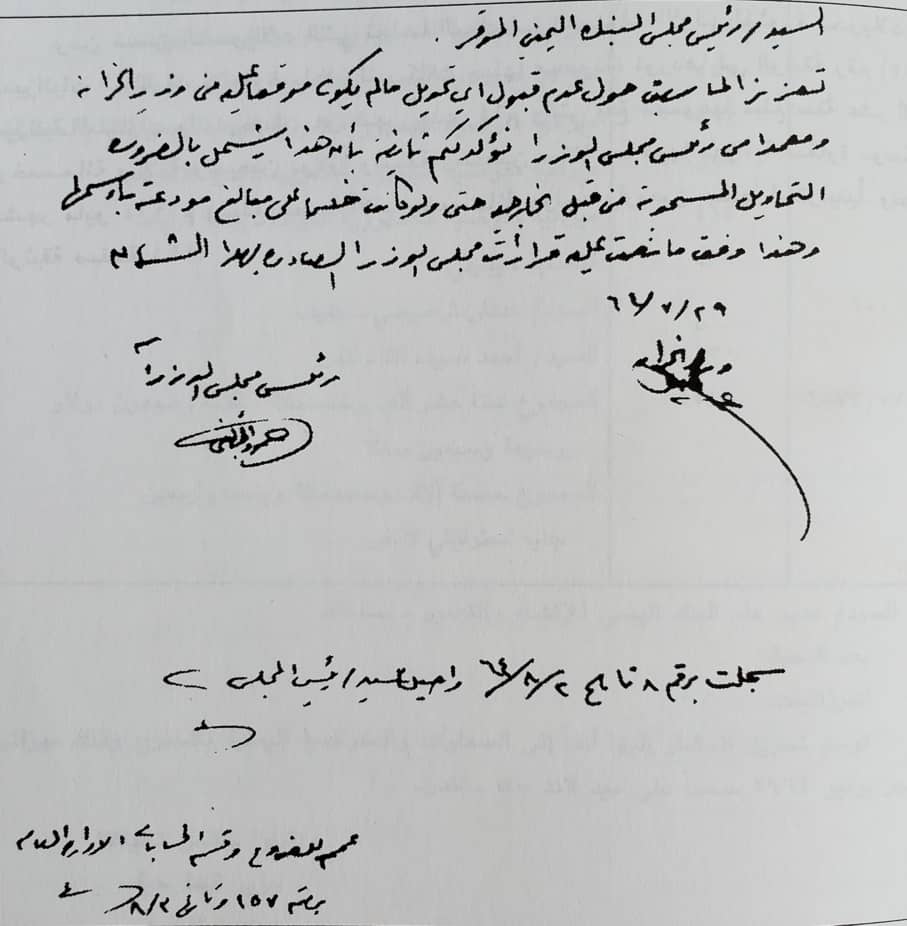 السيد/ رئيس مجلس البنك اليمني الموقر .
تعزيزا لما سبق حول عدم قبول اي تحويل مالم يكون موقعا عليه من وزير الخزانة
ومعمدا من رئيس مجلس الوزراء نؤكد لكم ثانية بأن هذا يشمل بالضرورة
التحاويل المسحوبة من قبل الخارجية حتى ولو كانت خصما على مبالغ مودعة
وهذا وفق ما نصت عليه قرارات مجلس الوزراء الصادرة بهذا الشأن
٢٩/٧/
وزير الخزانة
رئيس مجلس الوزراء
سجلت برقم ٨ تاريخ ٢/٨/٦٤ واحيل للسيد/ رئيس المجلس
عمم للفروع وقسم الحسابات الادارة العامة
برقم ١٥٧ وتاريخ ٣/٨